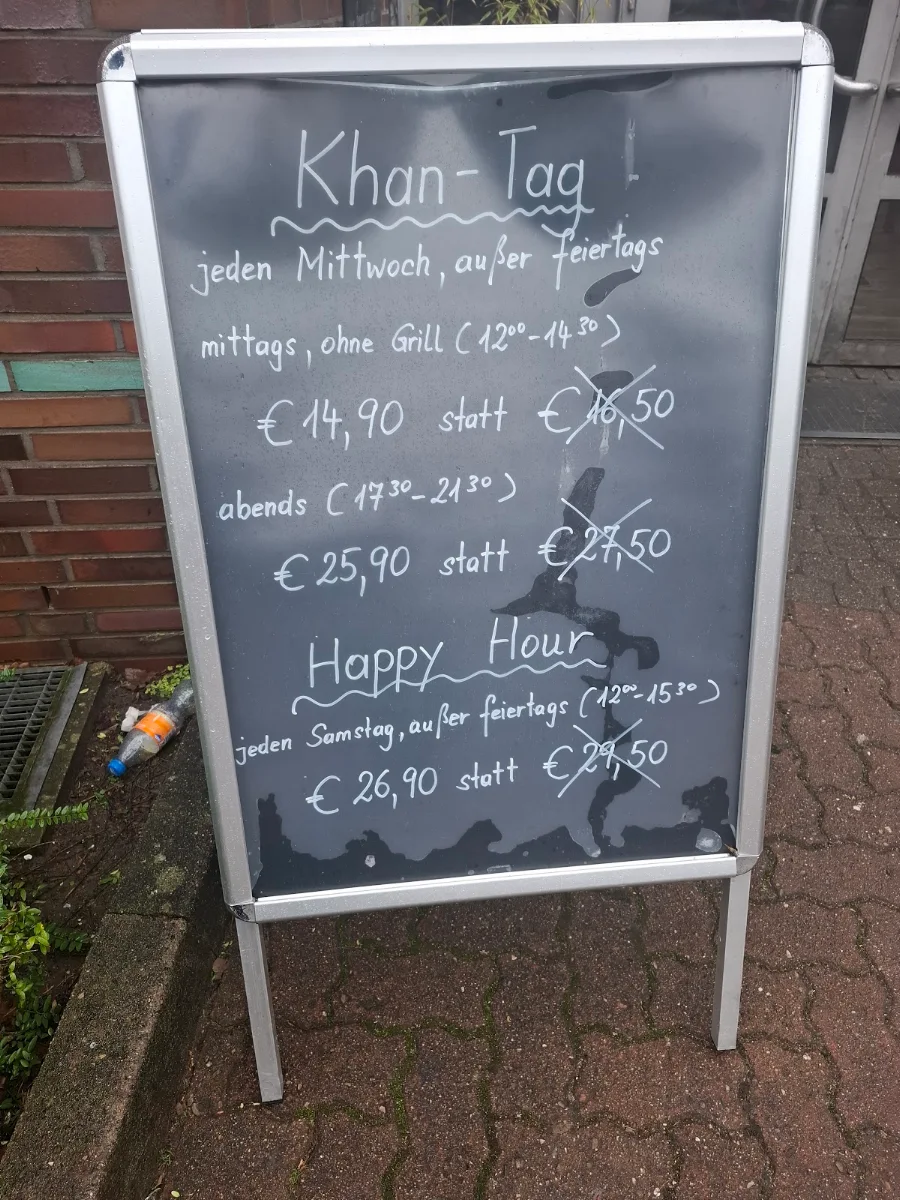 Khan-Tag
jeden Mittwoch, außer feiertags
mittags, ohne Grill (12⁰⁰-14³⁰)
€ 14,90 statt € 16,50
abends (17³⁰-21³⁰)
€ 25,90 statt € 27,50
Happy Hour
jeden Samstag, außer feiertags (12⁰⁰-15³⁰)
€ 26,90 statt € 29,50